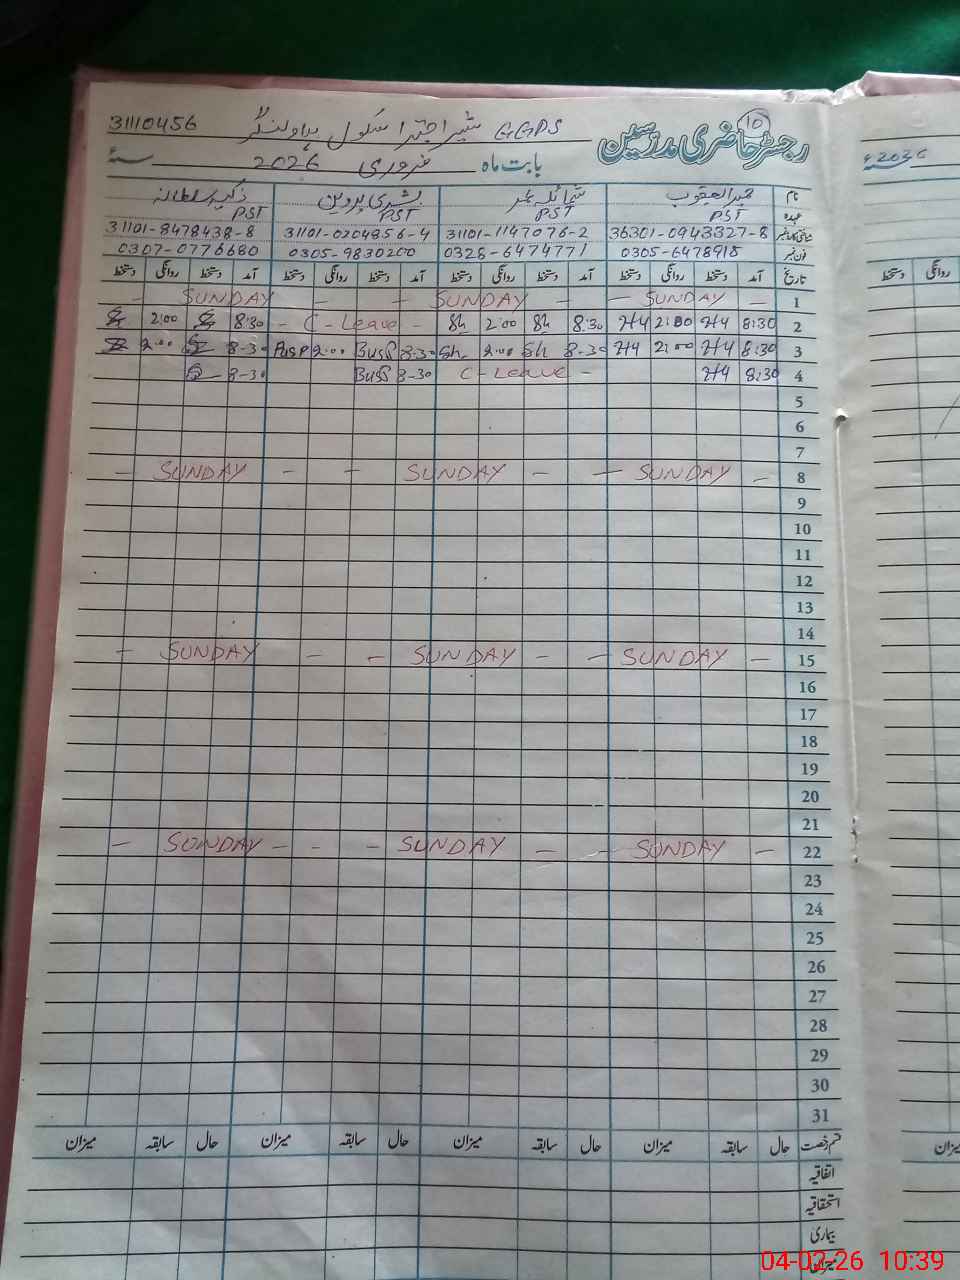 10
رجسٹر حاضری مدرسین
GGPS سکول بہاولنگر 31110456
بابت ماہ فروری 2026 سنہ
نام
عہدہ PST PST PST PST
شناختی کارڈ نمبر 36301-0943327-8 31101-1147076-2 31101-0204856-4 31101-8478438-8
فون نمبر 0305-6478918 0328-6474771 0305-9830200 0307-0776680
تاریخ آمد دستخط روانگی دستخط آمد دستخط روانگی دستخط آمد دستخط روانگی دستخط آمد دستخط روانگی دستخط
1 — SUNDAY — — SUNDAY — — SUNDAY —
2 8:30 2:00 8:30 Sh 2:00 Sh - C-Leave - 8:30 2:00
3 8:30 2:00 8-30 Sh 2:00 Sh 8-30 2:00 8-30 2:00
4 8:30 C-Leave - 8-30 8-30
5
6
7
8 — SUNDAY — — SUNDAY — — SUNDAY —
9
10
11
12
13
14
15 — SUNDAY — — SUNDAY — — SUNDAY —
16
17
18
19
20
21
22 — SUNDAY — — SUNDAY — — SUNDAY —
23
24
25
26
27
28
29
30
31
قسم رخصت حال سابقہ میزان حال سابقہ میزان حال سابقہ میزان حال سابقہ میزان
اتفاقیہ
استحقاقیہ
بیماری
میزان
روانگی دستخط
04-02-26 10:39